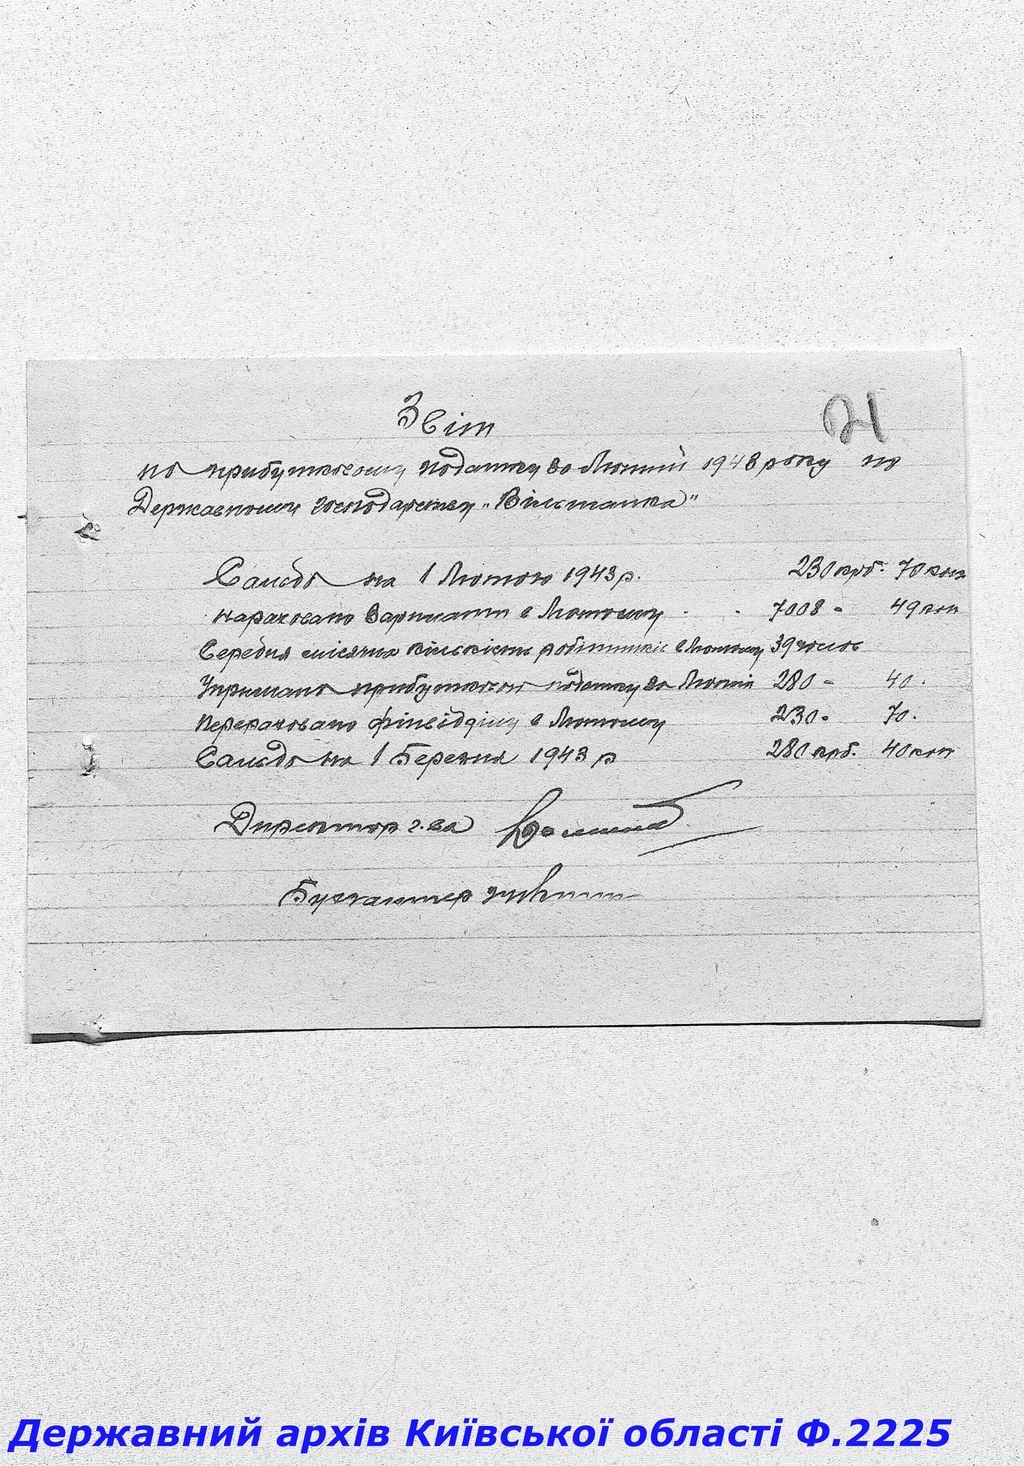 21
Звіт
по прибутковому податку за Лютий 1943 року по
Державному господарству „Вільшанка"
Сальдо на 1 Лютого 1943 р. 230 крб. 70 коп
Нараховано Зарплати в Лютому 7008 - 49 коп
Середня місячна кількість робітників в Лютому 39 чолов
Утримано прибуткового податку за Лютий 280 - 40.
Перераховано фінвідділу в Лютому 230 - 70.
Сальдо на 1 Березня 1943 р 280 крб. 40 коп
Директор г-ва
Бухгалтер
Державний архів Київської області Ф.2225